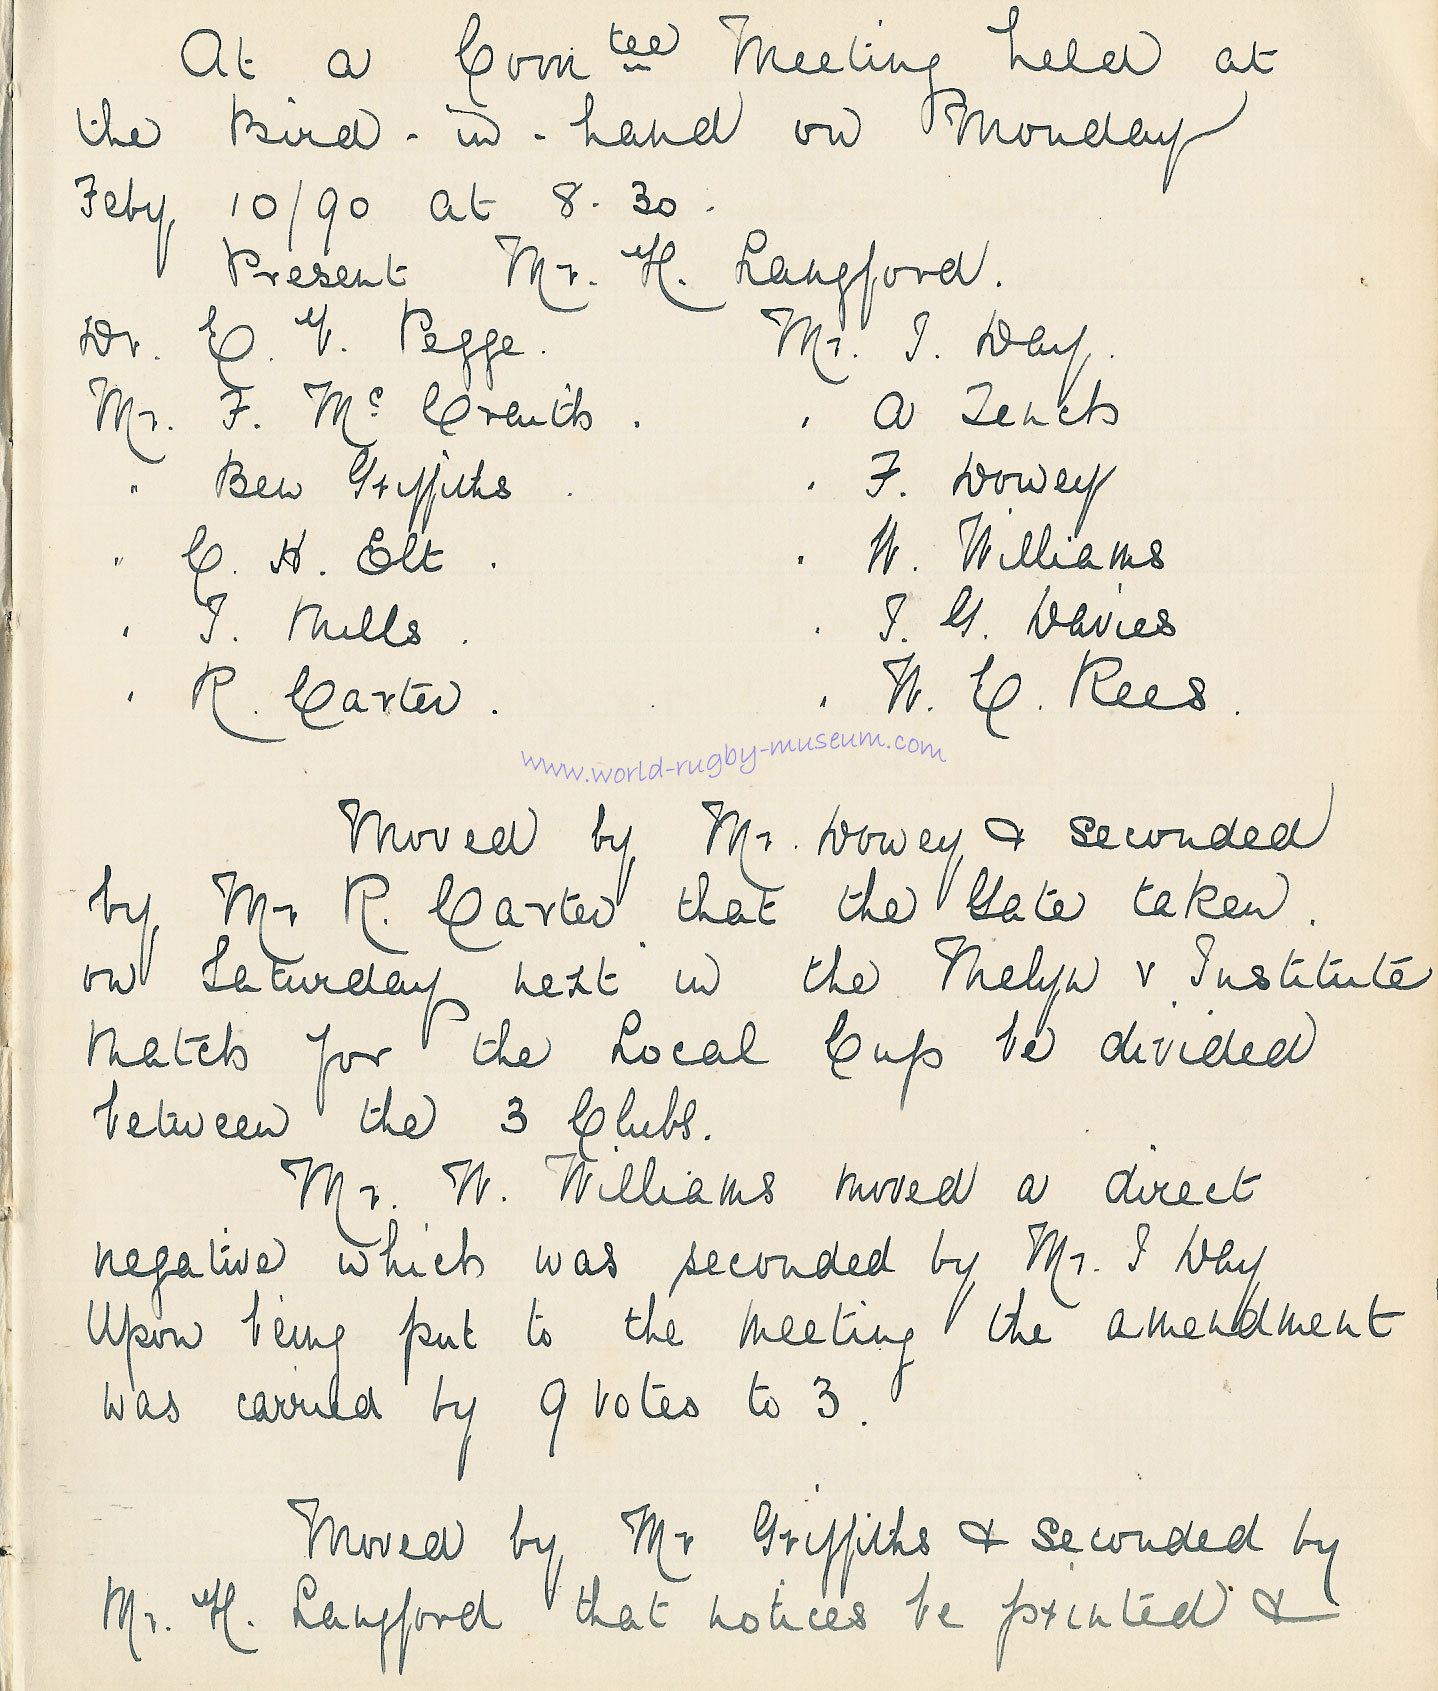 At a Com^tee Meeting held at
the Bird-in-hand on Monday
Feby 10/90 at 8.30.
Present Mr. H. Langford.
Dr. E. V. Pegge. Mr. J. Day.
Mr. F. Mc Creath. " A Tench
" Ben Griffiths. " F. Dovey
" C. H. Elt. " W. Williams
" J. Mills. " J. G. Davies
" R. Carter. " W. E. Rees.
www.world-rugby-museum.com
Moved by Mr. Dovey & seconded
by Mr R. Carter that the Gate taken.
on Saturday next in the Melyn v Institute
match for the Local Cup be divided
between the 3 Clubs.
Mr. W. Williams moved a direct
negative which was seconded by Mr. J Day
Upon being put to the meeting the amendment
was carried by 9 votes to 3.
Moved by Mr Griffiths & seconded by
Mr. H. Langford that notices be printed &